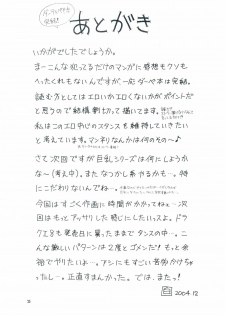 あとがき
いかがでしたでしょうか。
まーこんな犯ってるだけのマンガに感想もクソも
へったくれもないんですが、一応ダーペ本は完結。
読む方としてはエロいかエロくないかがポイントだ
と思うので結構割切って描いてます。
私はこのエロ中心のスタンスを維持していきたい
と考えています。マンネリなんかは何のその〜♪
さて次回ですが巨乳シリーズは何にしようか
な〜(考え中)。またなつかし系やるかも…。特
にこだわりないんでね…。
今回はすごく作画に時間がかかってねぇ…次
回はもっとアッサリした感じにしたいっスよ。ドラ
クエ8も発売日に買ったままでタンスの中…。こ
んな厳しいパターンは2度とゴメンだ！もっと余
裕でやりたいねー。アシにもすごい苦労かけちゃ
ったしー。正直すまんかった。では、またっ！
2004.12